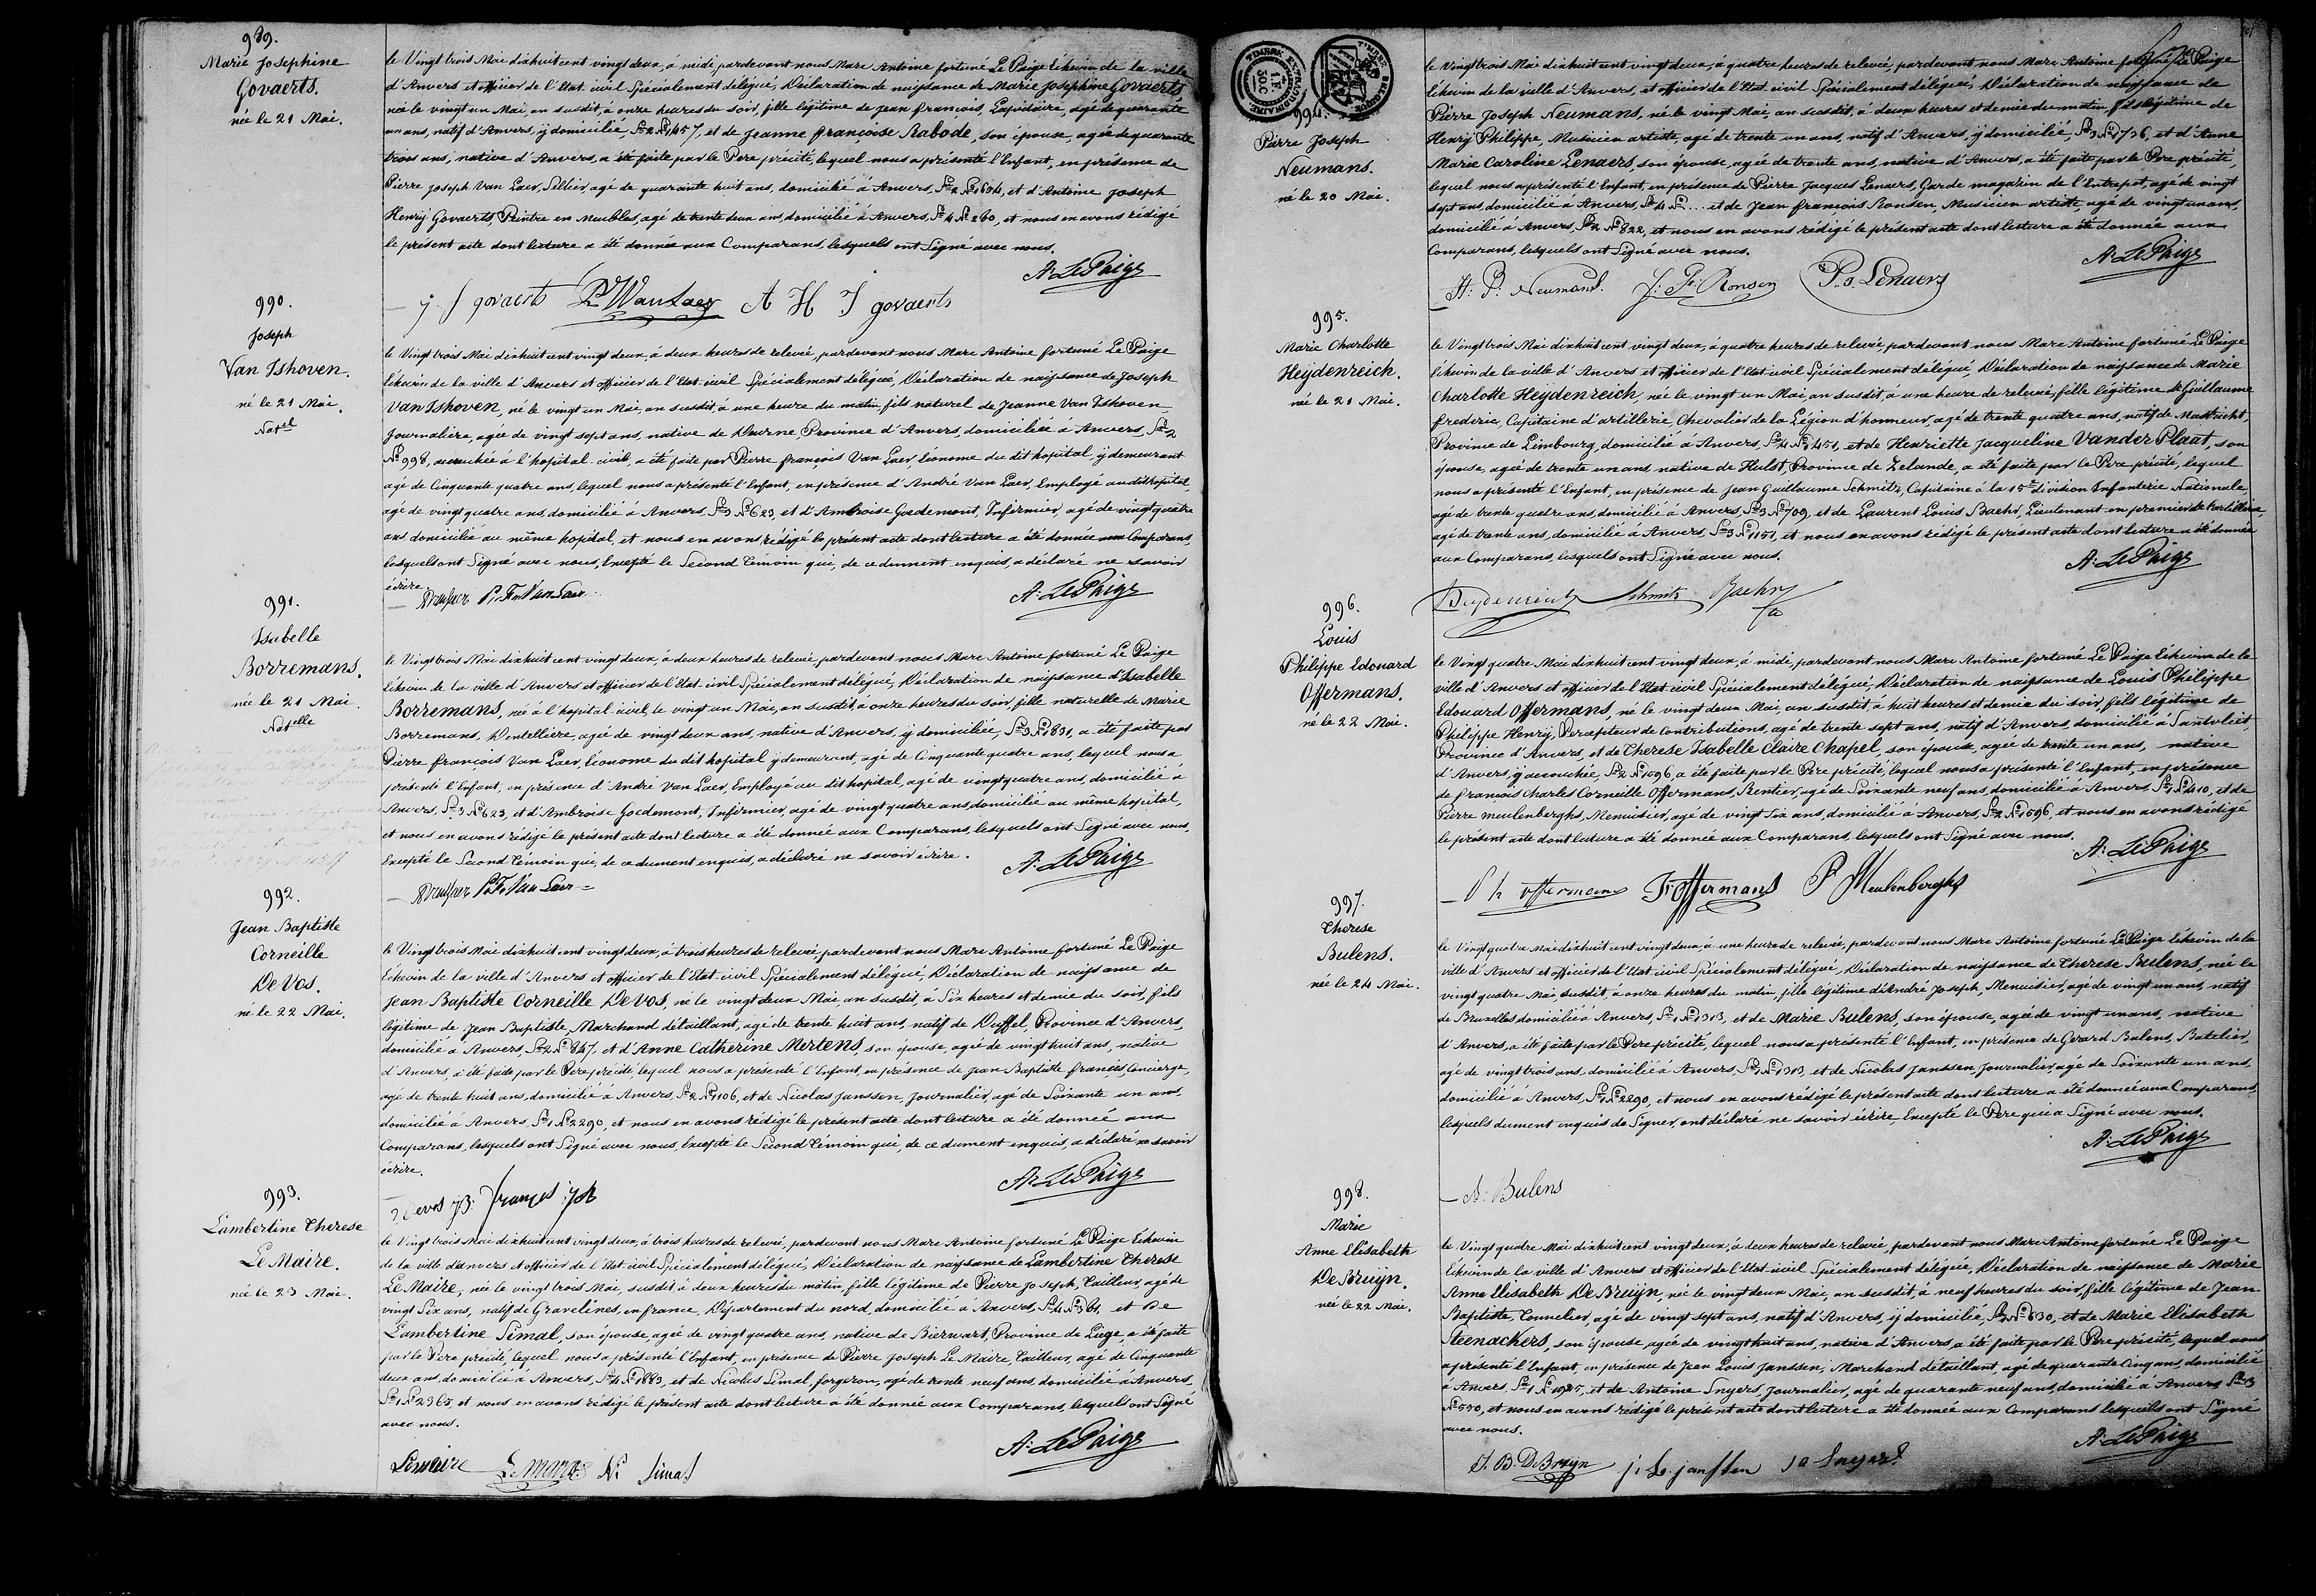 989.
Marie Josephine
Govaerts.
née le 21 Mai.
le Vingt trois Mai dixhuit cent vingt deux, à midi, pardevant nous Marc Antoine fortuné Le Paige Echevin de la ville
d'Anvers et officier de l'Etat civil Spécialement délégué, Déclaration de naissance de Marie Josephine Govaerts
née le vingt un Mai, an susdit, à onze heures du soir, fille légitime de Jean françois, Lapidaire, agé de quarante
un ans, natif d'Anvers, ÿ domicilié, Son 2 No 1457, et de Jeanne françoise Rabode, son épouse, agée de quarante
trois ans, native d'Anvers, a été faite par le Pere précité, lequel nous a présenté l'Enfant, en présence de
Pierre Joseph Van Laer, Sellier, agé de quarante huit ans, domicilié à Anvers, Son 2 No 1604, et d'Antoine Joseph
Henrÿ Govaerts, Peintre en Meubles, agé de trente deux ans, domicilié à Anvers, Son 4 No 260, et nous en avons rédigé
le présent acte dont lecture a été donnée aux Comparans, lesquels ont Signé avec nous.
A. LePaige
J. f govaerts P J Van Laer A H J govaerts
990.
Joseph
Van Ishoven.
né le 21 Mai.
Natel
le Vingt trois Mai dixhuit cent vingt deux, à deux heures de relevée, pardevant nous Marc Antoine fortuné Le Paige
Echevin de la ville d'Anvers et officier de l'Etat-civil Spécialement délégué, Déclaration de naissance de Joseph
Van Ishoven, né le vingt un Mai, an susdit, à une heure du matin, fils naturel de Jeanne Van Ishoven,
Journaliere, agée de vingt sept ans, native de Deurne, Province d'Anvers, domiciliée à Anvers, Son 2
No 998, accouchée à l'hopital-civil, a été faite par Pierre françois Van Laer, Econome du dit hopital, ÿ demeurant
agé de Cinquante quatre ans, lequel nous a présenté l'Enfant, en présence d'André Van Laer, Employé au dit hopital,
agé de vingt quatre ans, domicilié à Anvers, Son 3 No 623, et d'Ambroise Goedemont, Infirmier, agé de vingt quatre
ans domicilié au même hopital, et nous en avons rédigé le présent acte dont lecture a été donnée aux Comparans,
lesquels ont Signé avec nous, Excepté le Second Témoin qui, de ce dument enquis, a déclaré ne savoir
écrire.
P. F. Van Laer A. LePaige
991.
Isabelle
Borremans.
née le 21 Mai.
Natelle
le Vingt trois Mai dixhuit cent vingt deux, à deux heures de relevée, pardevant nous Marc Antoine fortuné Le Paige
Echevin de la ville d'Anvers et officier de l'Etat-civil Spécialement délégué, Déclaration de naissance d'Isabelle
Borremans, née à l'hopital-civil, le vingt un Mai, an susdit, à onze heures du soir, fille naturelle de Marie
Borremans, Dentelliere, agée de vingt deux ans, native d'Anvers, ÿ domiciliée, Son 3 No 1831, a été faite par
Pierre françois Van Laer, Econome du dit hopital ÿ demeurant, agé de Cinquante quatre ans, lequel nous a
présenté l'Enfant, en présence d'André Van Laer, Employé au dit hopital, agé de vingt quatre ans, domicilié à
Anvers, Son 3 No 623, et d'Ambroise Goedemont, Infirmier, agé de vingt quatre ans, domicilié au même hopital,
et nous en avons rédigé le présent acte dont lecture a été donnée aux Comparans, lesquels ont Signé avec nous,
Excepté le Second Témoin qui, de ce dument enquis, a déclaré ne savoir écrire.
A. LePaige
P. F. Van Laer
992.
Jean Baptiste
Corneille
De Vos.
né le 22 Mai.
le Vingt trois Mai dixhuit cent vingt deux, à trois heures de relevée, pardevant nous Marc Antoine fortuné Le Paige
Echevin de la ville d'Anvers et officier de l'Etat-civil Spécialement délégué, Déclaration de naissance de
Jean Baptiste Corneille De Vos, né le vingt deux Mai, an susdit, à Six heures et demie du soir, fils
légitime de Jean Baptiste, Marchand détaillant, agé de trente huit ans, natif de Duffel, Province d'Anvers,
domicilié à Anvers, Son 2 No 847, et d'Anne Catherine Mertens, son épouse, agée de vingt huit ans, native
d'Anvers, a été faite par le Pere précité, lequel nous a présenté l'Enfant, en présence de Jean Baptiste francès, Concierge,
agé de trente huit ans, domicilié à Anvers, Son 2 No 1106, et de Nicolas Janssen, Journalier, agé de Soixante un ans,
domicilié à Anvers, Son 1 No 2290, et nous en avons rédigé le présent acte dont lecture a été donnée aux
Comparans, lesquels ont Signé avec nous, Excepté le Second Témoin qui, de ce dument enquis, a déclaré ne savoir
écrire.
A. LePaige
993.
Lambertine Therese
Le Maire.
née le 23 Mai.
le Vingt trois Mai dixhuit cent vingt deux, à trois heures de relevée, pardevant nous Marc Antoine fortuné Le Paige Echevin
de la ville d'Anvers et officier de l'Etat-civil Spécialement délégué, Déclaration de naissance de Lambertine Therese
Le Maire, née le vingt trois Mai, susdit, à deux heures du matin, fille légitime de Pierre Joseph, Tailleur, agé de
vingt Six ans, natif de Gravelines, en france, Département du nord, domicilié à Anvers, Son 4 No 361, et de
Lambertine Simal, son épouse, agée de vingt quatre ans, native de Bierwart, Province de Liege, a été faite
par le Pere précité, lequel nous a présenté l'Enfant, en présence de Pierre Joseph Le Maire, Tailleur, agé de Cinquante
deux ans, domicilié à Anvers, Son 4 No 1883, et de Nicolas Simal, forgeron, agé de trente neuf ans, domicilié à Anvers,
Son 1 No 2365, et nous en avons rédigé le présent acte dont lecture a été donnée aux Comparans, lesquels ont Signé
avec nous.
A. LePaige
Lemaire Le Maire Ns Simal
TIMBRE EXTRAORDINAIRE
994.
Pierre Joseph
Neumans.
né le 20 Mai.
le Vingt trois Mai dixhuit cent vingt deux, à quatre heures de relevée, pardevant nous Marc Antoine fortuné Le Paige
Echevin de la ville d'Anvers, et officier de l'Etat civil Spécialement délégué, Déclaration de naissance de
Pierre Joseph Neumans, né le vingt Mai, an susdit, à deux heures et demie du matin, fils légitime de
Henrÿ Philippe, Musicien artiste, agé de trente un ans, natif d'Anvers, ÿ domicilié, Son 3 No 1736, et d'Anne
Marie Caroline Lenaers, son épouse, agée de trente ans, native d'Anvers, a été faite par le Pere précité,
lequel nous a présenté l'Enfant, en présence de Pierre Jacques Lenaers, Garde magazin de l'Entrepot, agé de vingt
sept ans, domicilié à Anvers, Son 4 No ... et de Jean françois Ronsen, Musicien artiste, agé de vingt un ans,
domicilié à Anvers, Son 2 No 822, et nous en avons rédigé le présent acte dont lecture a été donnée aux
Comparans, lesquels ont Signé avec nous.
A. LePaige
H. P. Neumans. J. F. Ronsen P. J. Lenaers
995.
Marie Charlotte
Heÿdenreich.
née le 21 Mai.
le Vingt trois Mai dixhuit cent vingt deux, à quatre heures de relevée, pardevant nous Marc Antoine fortuné Le Paige
Echevin de la ville d'Anvers et officier de l'Etat civil Spécialement délégué, Déclaration de naissance de Marie
Charlotte Heÿdenreich, née le vingt un Mai, an susdit, à une heure de relevée, fille légitime de Guillaume
frederic, Capitaine d'artillerie, Chevalier de la Légion d'honneur, agé de trente quatre ans, natif de Mastricht,
Province de Limbourg, domicilié à Anvers, Son 4 No 1451, et de Henriette Jacqueline Vander Plaat, son
épouse, agée de trente un ans native de Hulst, Province de Zelande, a été faite par le Pere précité, lequel
nous a présenté l'Enfant, en présence de Jean Guillaume Schmitz, Capitaine à la 15e division Infanterie Nationale,
agé de trente quatre ans, domicilié à Anvers, Son 3 No 709, et de Laurent Louis Baehr, Lieutenant en premier de l'artillerie,
agé de trente ans, domicilié à Anvers, Son 3 No 1151, et nous en avons rédigé le présent acte dont lecture a été donnée
aux Comparans, lesquels ont Signé avec nous.
A. LePaige
Heydenreich Schmitz Baehr
996.
Louis
Philippe Edouard
Offermans.
né le 22 Mai.
le Vingt quatre Mai dixhuit cent vingt deux, à midi, pardevant nous Marc Antoine fortuné Le Paige Echevin de la
ville d'Anvers et officier de l'Etat civil Spécialement délégué, Déclaration de naissance de Louis Philippe
Edouard Offermans, né le vingt deux Mai, an susdit, à huit heures et demie du soir, fils légitime de
Philippe Henrÿ, Percepteur de Contributions, agé de trente sept ans, natif d'Anvers, domicilié à Santvliet,
Province d'Anvers, et de Therese Isabelle Claire Chapel, son épouse, agée de trente un ans, native
d'Anvers, ÿ accouchée, Son 2 No 1596, a été faite par le Pere précité, lequel nous a présenté l'Enfant, en présence
de françois Charles Corneille Offermans, Rentier, agé de Soixante neuf ans, domicilié à Anvers, Son 1 No 410, et de
Pierre Meulenberghs, Menuisier, agé de vingt Six ans, domicilié à Anvers, Son 2 No 1596, et nous en avons rédigé
le présent acte dont lecture a été donnée aux Comparans, lesquels ont Signé avec nous.
A. LePaige
Ph offermans F. offermans P Meulenberghs
997.
Therese
Bulens.
née le 24 Mai.
le Vingt quatre Mai dixhuit cent vingt deux, à une heure de relevée, pardevant nous Marc Antoine fortuné Le Paige Echevin de la
ville d'Anvers et officier de l'Etat civil Spécialement délégué, Déclaration de naissance de Therese Bulens, née le
vingt quatre Mai susdit, à onze heures du matin, fille légitime d'André Joseph, Menuisier, agé de vingt un ans, natif
de Bruxelles domicilié à Anvers, Son 1 No 1313, et de Marie Bulens, son épouse, agée de vingt un ans, native
d'Anvers, a été faite par le Pere précité, lequel nous a présenté l'Enfant, en présence de Gerard Bulens, Batelier,
agé de vingt trois ans, domicilié à Anvers, Son 1 No 1313, et de Nicolas Janssen, Journalier, agé de Soixante un ans,
domicilié à Anvers, Son 1 No 2290, et nous en avons rédigé le présent acte dont lecture a été donnée aux Comparans,
lesquels dument enquis de Signer, ont déclaré ne savoir écrire, Excepté le Pere qui a Signé avec nous.
A. LePaige
A. Bulens
998.
Marie
Anne Elisabeth
De Bruÿn.
née le 22 Mai.
le Vingt quatre Mai dixhuit cent vingt deux, à deux heures de relevée, pardevant nous Marc Antoine fortuné Le Paige
Echevin de la ville d'Anvers et officier de l'Etat-civil Spécialement délégué, Déclaration de naissance de Marie
Anne Elisabeth De Bruÿn, née le vingt deux Mai, an susdit, à neuf heures du soir, fille légitime de Jean
Baptiste, Tonnelier, agé de vingt sept ans, natif d'Anvers, ÿ domicilié, No 630, et de Marie Elisabeth
Steenackers, son épouse, agée de vingt huit ans, native d'Anvers, a été faite par le Pere précité, lequel nous
a présenté l'Enfant, en présence de Jean Louis Janssen, Marchand détaillant, agé de quarante Cinq ans, domicilié
à Anvers, Son 1 No 1985, et de Antoine Snyers, Journalier, agé de quarante neuf ans, domicilié à Anvers Son 3
No 530, et nous en avons rédigé le présent acte dont lecture a été donnée aux Comparans lesquels ont Signé
avec nous.
A. LePaige
J. B. De Bruyn j. L. janssen A Snyers